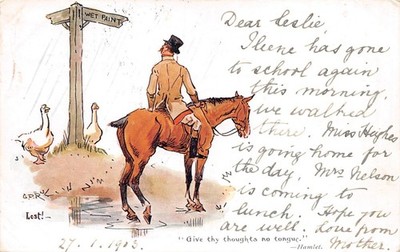 WET PAINT
Dear Leslie,
Ilene has gone
to school again
this morning.
we walked
there. Miss Hughes
is going home for
the day. Mrs Nelson
is coming to
lunch. Hope you
are well. Love from
Mother.
G.D.R.
Lost!—
"Give thy thoughts no tongue."
—Hamlet.
27. 1. 1903.